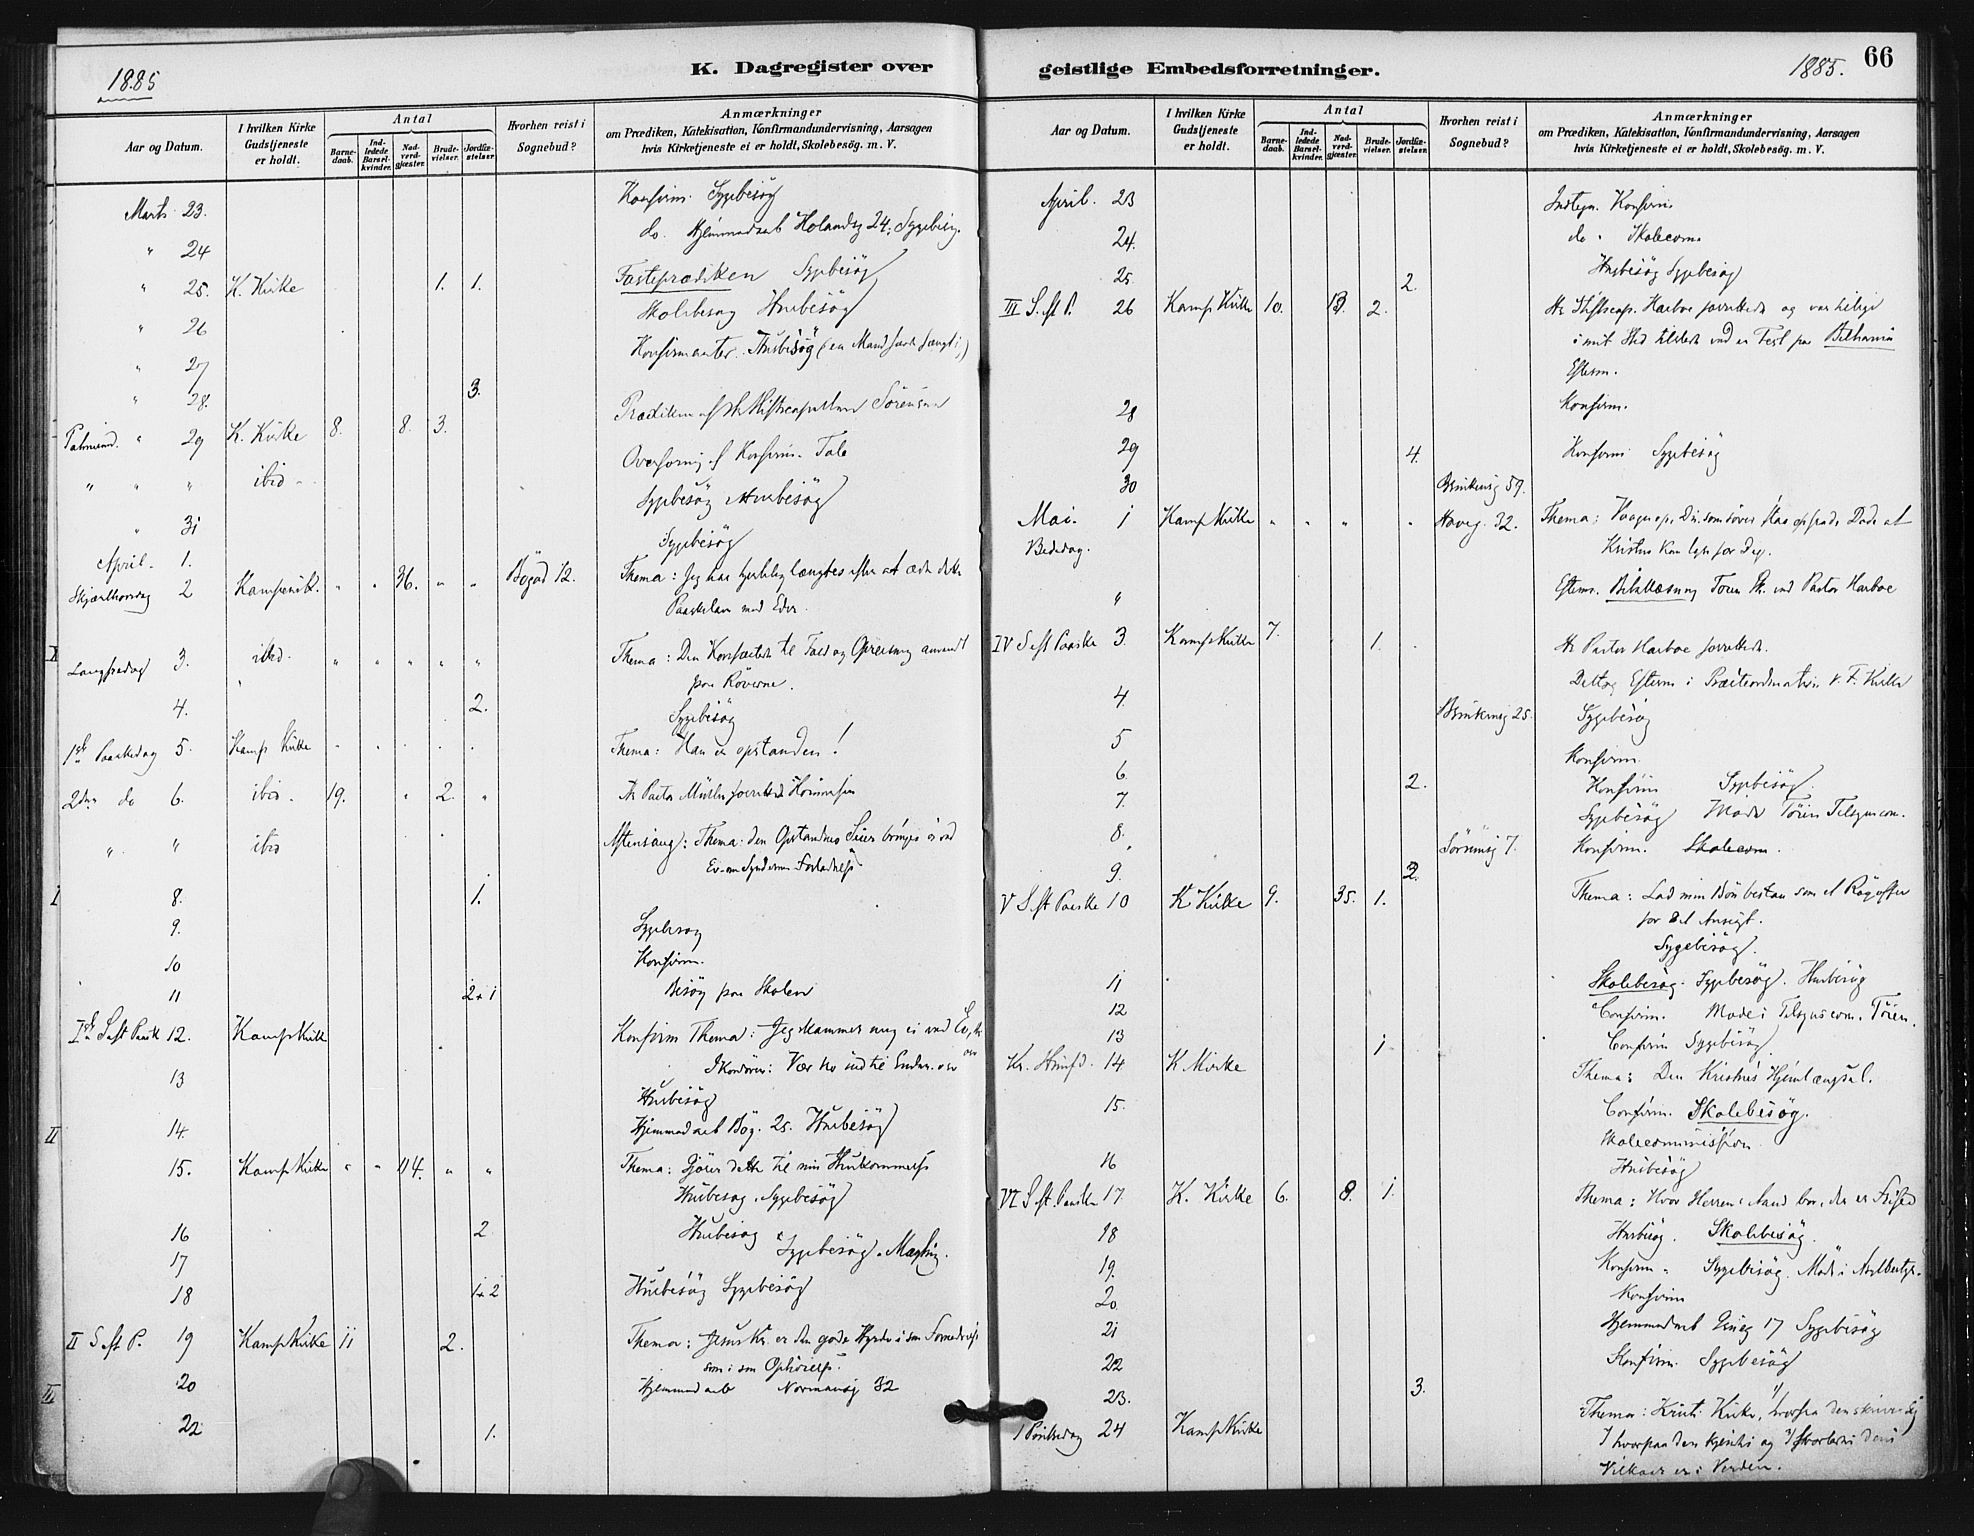 1885
K. Dagregister over
geistlige Embedsforretninger.
1885. 66
Aar og Datum.
I hvilken Kirke Gudstjeneste er holdt.
Antal
Barnedaab.
Indledede Barselkvinder.
Nadverdgjæster.
Brudevielser.
Jordfæstelser
Hvorhen reist i Sognebud?
Anmærkninger
om Prædiken, Katekisation, Konfirmandundervisning, Aarsagen
hvis Kirketjeneste ei er holdt, Skolebesøg. m. V.
Marts 23. Konfirm. Sygebesøg
" 24 do. Hjemmedaab 24. Sygebesøg.
" 25. K. Kirke 1. 1. Fasteprædiken Sygebesøg
" 26 Skolebesøg Husbesøg
" 27 Konfirmanter. Husbesøg
" 28. 3.
Palmesønd. " 29 K. Kirke 8. 8. 3. Prædiken af Sørensen
" " " ibid Konfirm. Tale
" 31 Sygebesøg Husbesøg
April 1. Sygebesøg
Skjærthorsdag 2 Kampenkk. " " 36. " " Bøgad 12. Thema: Jeg har hjertelig længtes efter at æde dette
Paaskelam med Eder.
Langfredag 3. ibid. " " " " " Thema: Den Korsfæstede til Fald og Opreisning anvendt
paa Røverne.
4. 2. Sygebesøg
1ste Paaskedag 5. Kamp Kirke Thema: Han er opstanden!
2den do 6. ibid. 19. " 2. " Hr Pastor Müller forrettede Høimesse
" " ibid Aftensang: Thema: den Opstandnes Seier bringes os ved
Ev. om Syndernes Forladelse
I 8. 1.
9. Sygebesøg
10 Konfirm.
11 2+1 Besøg paa Skolen
1ste S. eft Paask 12. Kamp Kirke Konfirm Thema: Jeg skammer mig ei ved Ev.
Vær tro indtil Enden.
13 Husbesøg
II 14. Hjemmedaab Bøg. 25. Husbesøg
15. Kamp Kirke " " 114. " " Thema: Gjører dette til min Ihukommelse
Husbesøg. Sygebesøg
16 2 Husbesøg
17 Sygebesøg.
18 1+2 Husbesøg Sygebesøg
II S. eft P. 19 Kamp Kirke 11 2. Thema: Jesus Kr. er den gode Hyrde i sin Fornedrelse
som i sin Ophøielse.
20 Hjemmedaab Normansg 32
22 1.
Aar og Datum.
I hvilken Kirke Gudstjeneste er holdt.
Antal
Barnedaab.
Indledede Barselkvinder.
Nadverdgjæster.
Brudevielser.
Jordfæstelser
Hvorhen reist i Sognebud?
Anmærkninger
om Prædiken, Katekisation, Konfirmandundervisning, Aarsagen
hvis Kirketjeneste ei er holdt, Skolebesøg. m. V.
April. 23 Indtegn. Konfirm
24. do. Skolecom.
25. 2. Husbesøg Sygebesøg
III S. eft P. 26 Kamp Kirke 10. 2. Hr Stiftscap. Harboe forrettede og var tillige
i mit Sted tilstede ved en Fest paa Bethania
Efterm.
28 Konfirm.
29 4. Konfirm Sygebesøg
30 59.
Mai. 1 Kamp Kirke " " " " 32. Thema: Vaagn op, Du som sover, staa op fra de Døde at
Bededag. Kristus kan lyse for Dig.
" Efterm. Bibellæsning Tøien Sk. ved Pastor Harboe
IV S. eft Paaske 3. Kamp Kirke 7. 1. Hr Pastor Harboe forrettede.
Deltog Efterm i Præsteordination V. F. Kirke
4. 25. Sygebesøg
5 Konfirm.
6. 2. Konfirm Sygebesøg.
7. Sygebesøg Møde Tøien Tilsynscom.
8. 7. Konfirm. Skolecom.
9. 2.
V S. eft Paaske 10 K Kirke 9. 35. 1. Thema: Lad min Bøn bestaa som et Røgoffer
for dit Ansigt.
Sygebesøg.
11 Skolebesøg. Sygebesøg. Husbesøg
12 Confirm. Møde i Tilsynscom. Tøien.
13 1 Confirm Sygebesøg
Kr. Himfd. 14 K Kirke Thema: Den Kristnes Hjemlængsel.
15. Confirm. Skolebesøg.
Skolecommission
16 Husbesøg
VI S. eft. Paaske 17. K. Kirke 6. 8. 1. Thema: Hvor Herrens Aand bor, der er Frihed
18 Husbesøg. Skolebesøg.
19. Konfirm. Sygebesøg. Møde i
20. Konfirm
21 Hjemmedaab 17 Sygebesøg
22 Konfirm. Sygebesøg
23. 3.
1 Pintsedag 24 Kamp Kirke Thema: Kristi Kirke, 1) hvorfra den skriver sig
2) hvorpaa den kjendes og 3) hvorledes dens
Vilkaar er i Verden.